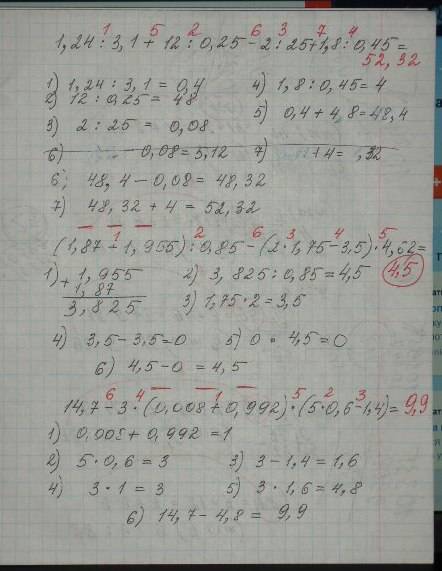 1 5 2 6 3 7 4
1,24 : 3,1 + 12 : 0,25 - 2 : 25 + 1,8 : 0,45 =
52,32
1) 1,24 : 3,1 = 0,4 4) 1,8 : 0,45 = 4
2) 12 : 0,25 = 48
3) 2 : 25 = 0,08 5) 0,4 + 4,8 = 48,4
6) - 0,08 = 5,12 7) + 4 = ,32
6) 48,4 - 0,08 = 48,32
7) 48,32 + 4 = 52,32
1 2 6 3 4 5
(1,87 + 1,955) : 0,85 - (2 · 1,75 - 3,5) · 4,62 =
4,5
1) + 1,955 2) 3,825 : 0,85 = 4,5
1,87
3,825 3) 1,75 · 2 = 3,5
4) 3,5 - 3,5 = 0 5) 0 · 4,5 = 0
6) 4,5 - 0 = 4,5
6 4 1 5 2 3
14,7 - 3 · (0,008 + 0,992) · (5 · 0,6 - 1,4) = 9,9
1) 0,008 + 0,992 = 1
2) 5 · 0,6 = 3 3) 3 - 1,4 = 1,6
4) 3 · 1 = 3 5) 3 · 1,6 = 4,8
6) 14,7 - 4,8 = 9,9